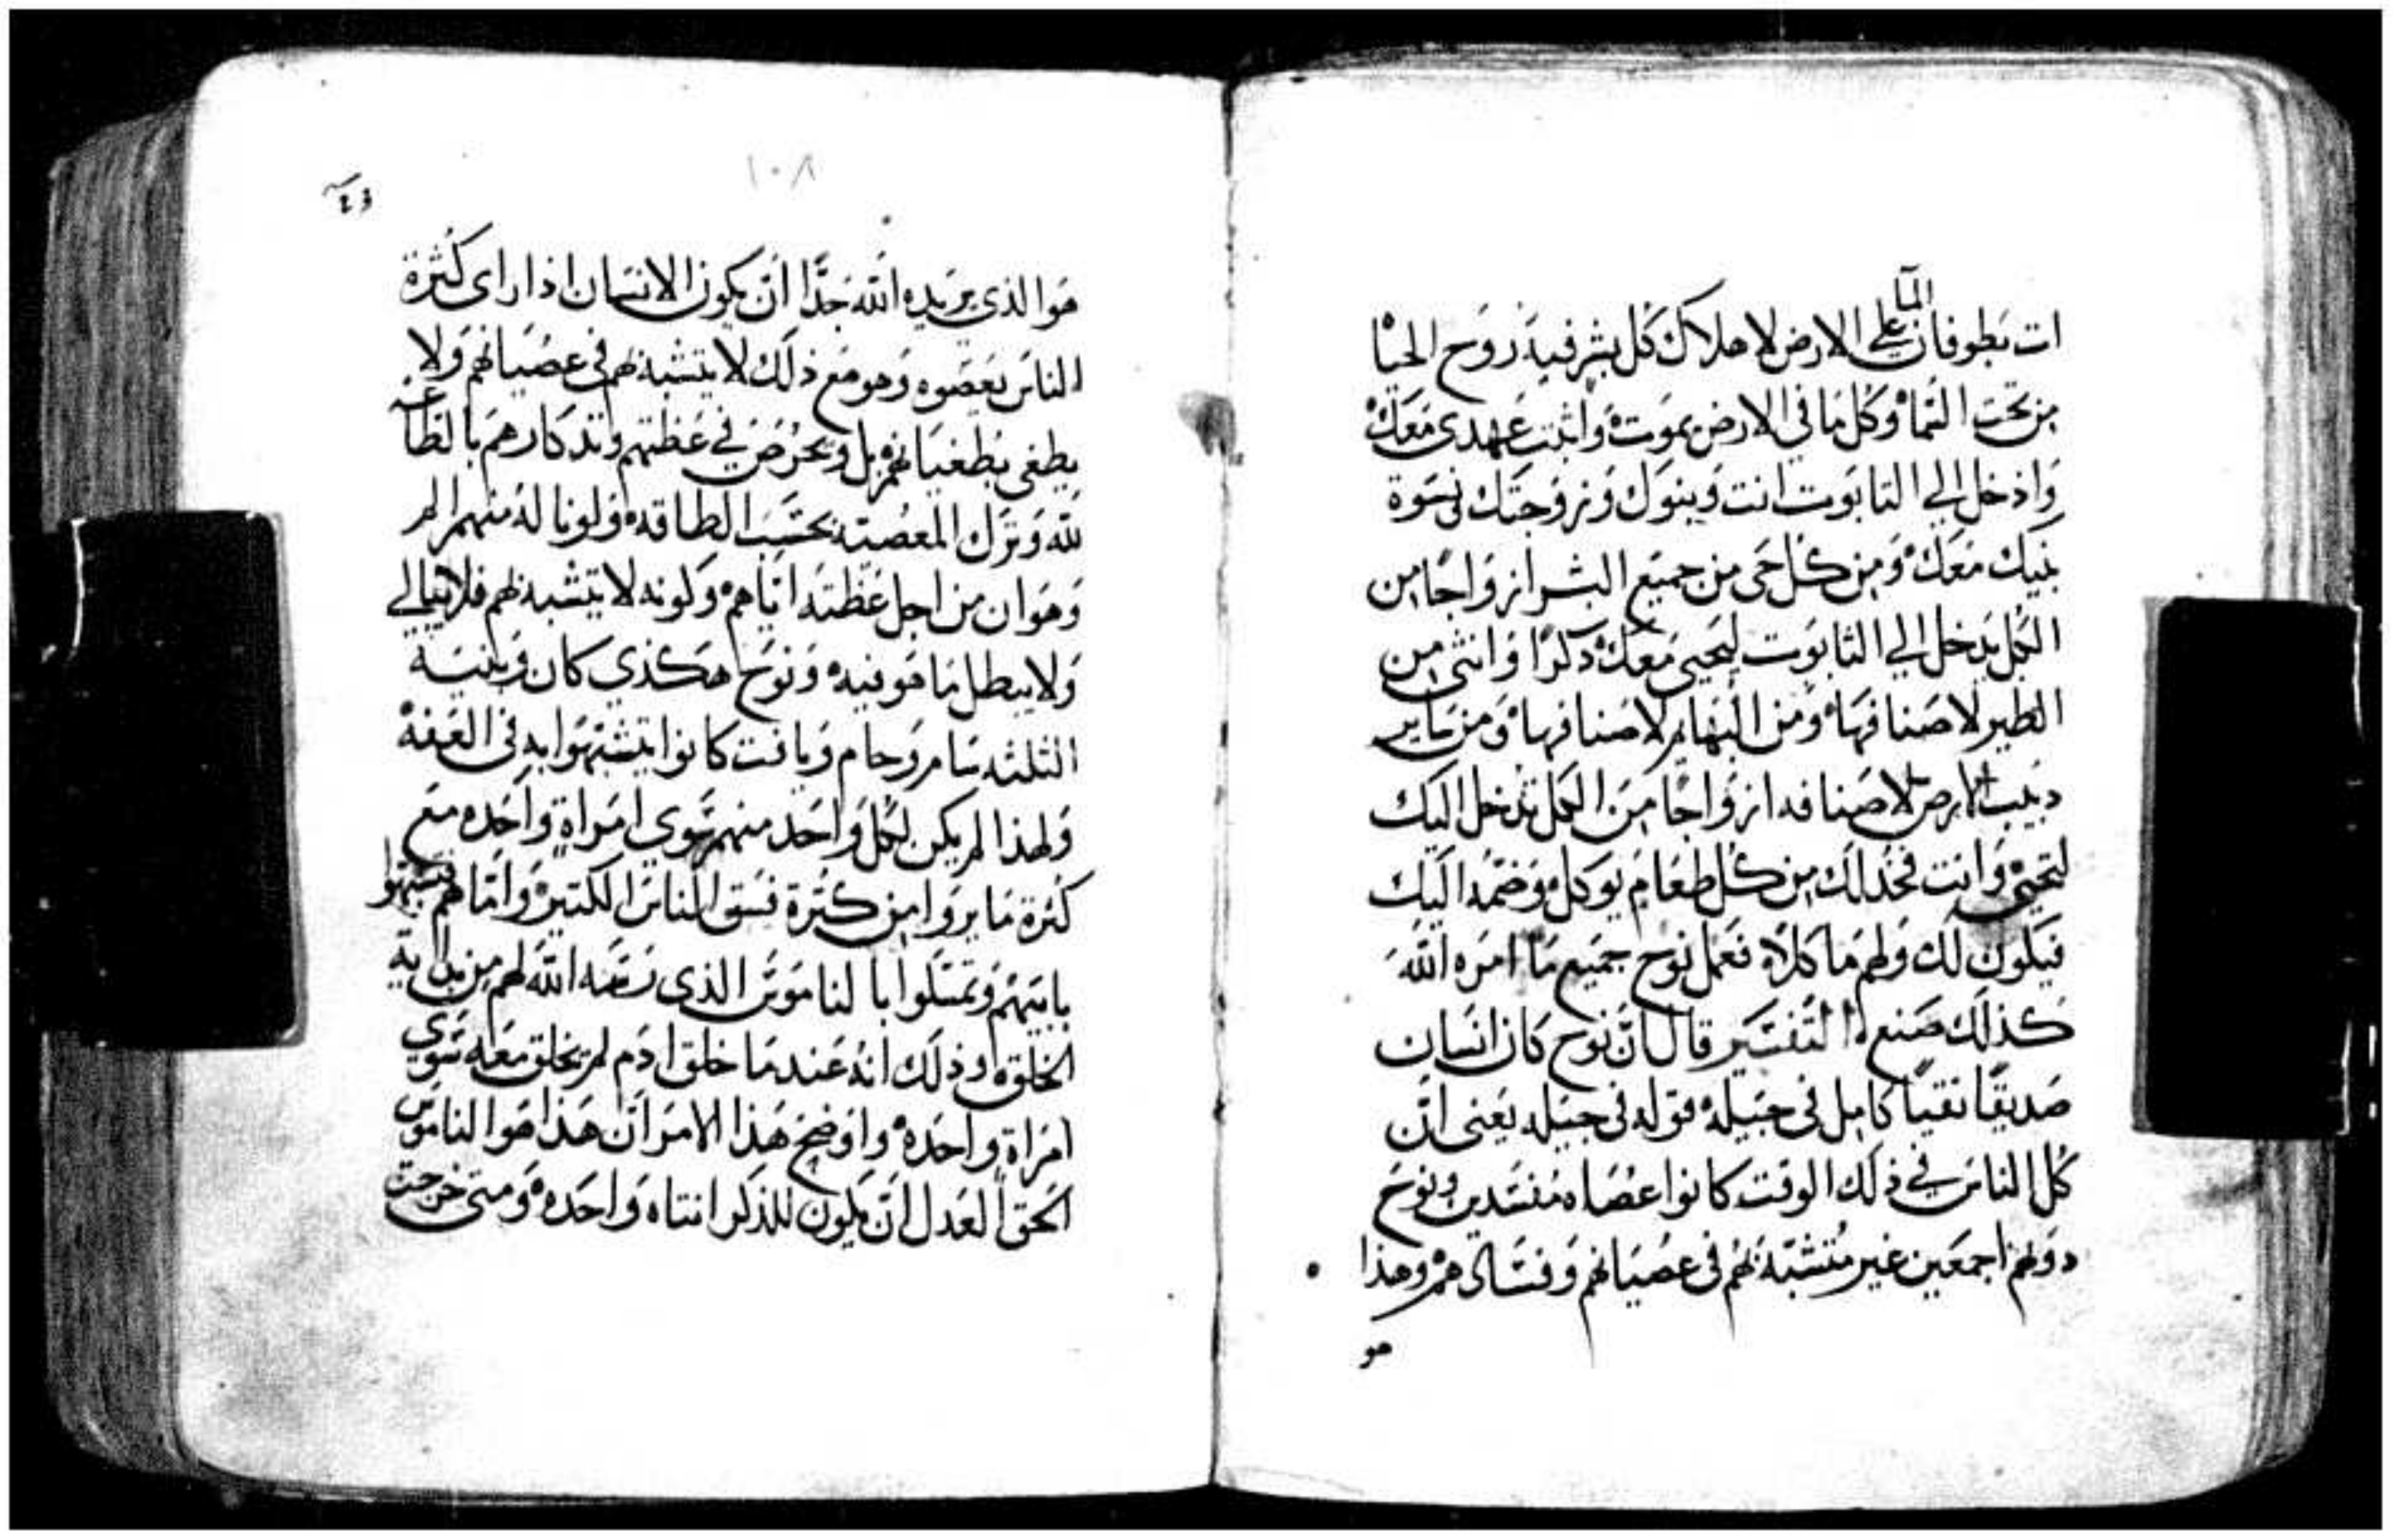 المآ
ات بطوفان على الارض لاهلاك كل بشر فيه روح الحيا
من تحت السما وكل ما في الارض يموت واثبت عهدى معك
وادخل الي التابوت انت وبنوك وزوجتك ونسوة
بنيك معك ومن كل حى من جميع البشر ازواجا من
الكل يدخل الي التابوت ليحيى معك دكرا وانثى من
الطير لاصنافها ومن البهايم لاصنافها ومن ساير
دبيب الارض لاصنافه ازواجا من الكل تدخل اليك
لتحيى وانت فخد لك من كل طعام يوكل وضمه اليك
فيكون لك ولهم ماكلا فعمل نوح جميع ما امره الله
كذلك صنع التفسير قال ان نوح كان انسان
صديقا نقيا كامل في جيله قوله في جيله يعنى ان
كل الناس في ذلك الوقت كانوا عصاه مفسدين ونوح
دونهم اجمعين غير متشبه بهم في عصيانهم وفسادهم وهذا
هو
١٠٨
هو الذي يريده الله جدا ان يكون الانسان اذا راى كثرة
الناس يعصوه وهو مع ذلك لا يتشبه بهم في عصيانهم ولا
يطغى بطغيانهم بل ويحرض في عظتهم وتدكارهم بالطاعه
لله وترك المعصيه بحسب الطاقه ولو ناله منهم الم
وهوان من اجل عظته اياهم وكونه لا يتشبه بهم فلا يبالي
ولا يبطل ما هو فيه ونوح هكذي كان وبنيه
الثلثه سام وحام ويافت كانوا يتشبهوا به في العفه
ولهذا لم يكن لكل واحد منهم سوي امراة واحده مع
كثرة ما يروا من كثرة فسق الناس الكتير واما هم فتشبهوا
بابيهم وتمسكوا بالناموس الذى سنه الله لهم من بداية
الخلقه وذلك انه عندما خلق ادم لم يخلق معه سوي
امراة واحده واوضح هذا الامر ان هذا هو الناموس
الحق العدل ان يكون للذكر انتاه واحده ومتى خرجت